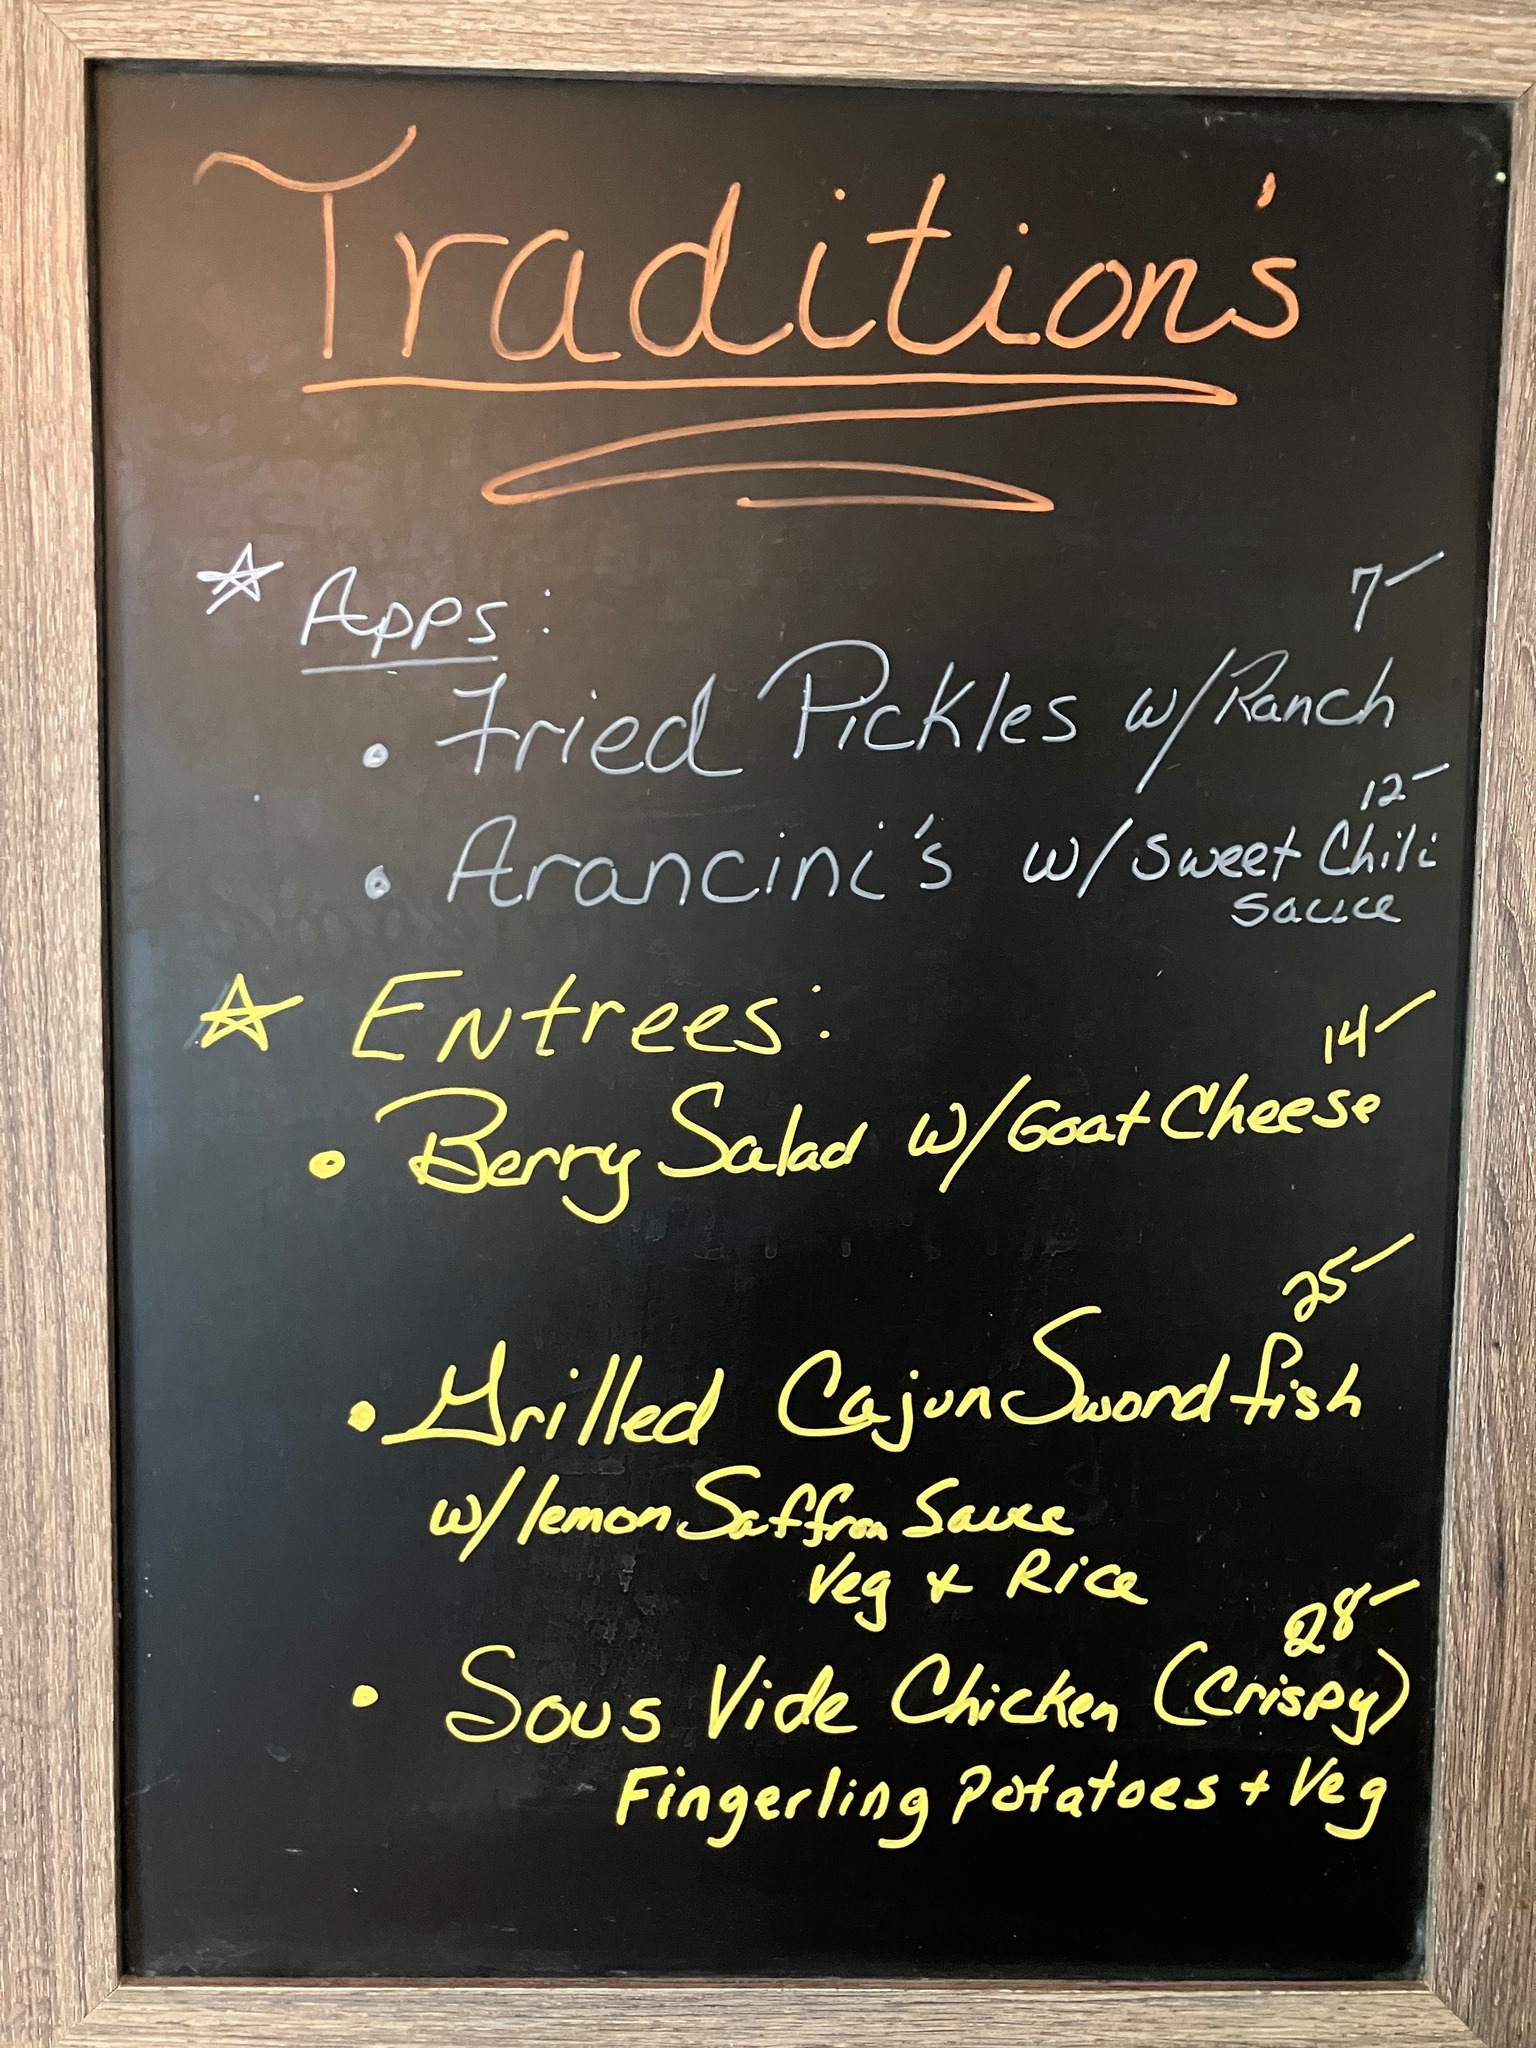 Tradition's
☆ Apps:
7-
• Fried Pickles w/Ranch
12-
• Arancini's w/ Sweet Chili
Sauce
☆ Entrees:
14-
• Berry Salad w/Goat Cheese
25-
• Grilled Cajun Swordfish
w/lemon Saffron Sauce
Veg + Rice
28-
• Sous Vide Chicken (Crispy)
Fingerling Potatoes + Veg